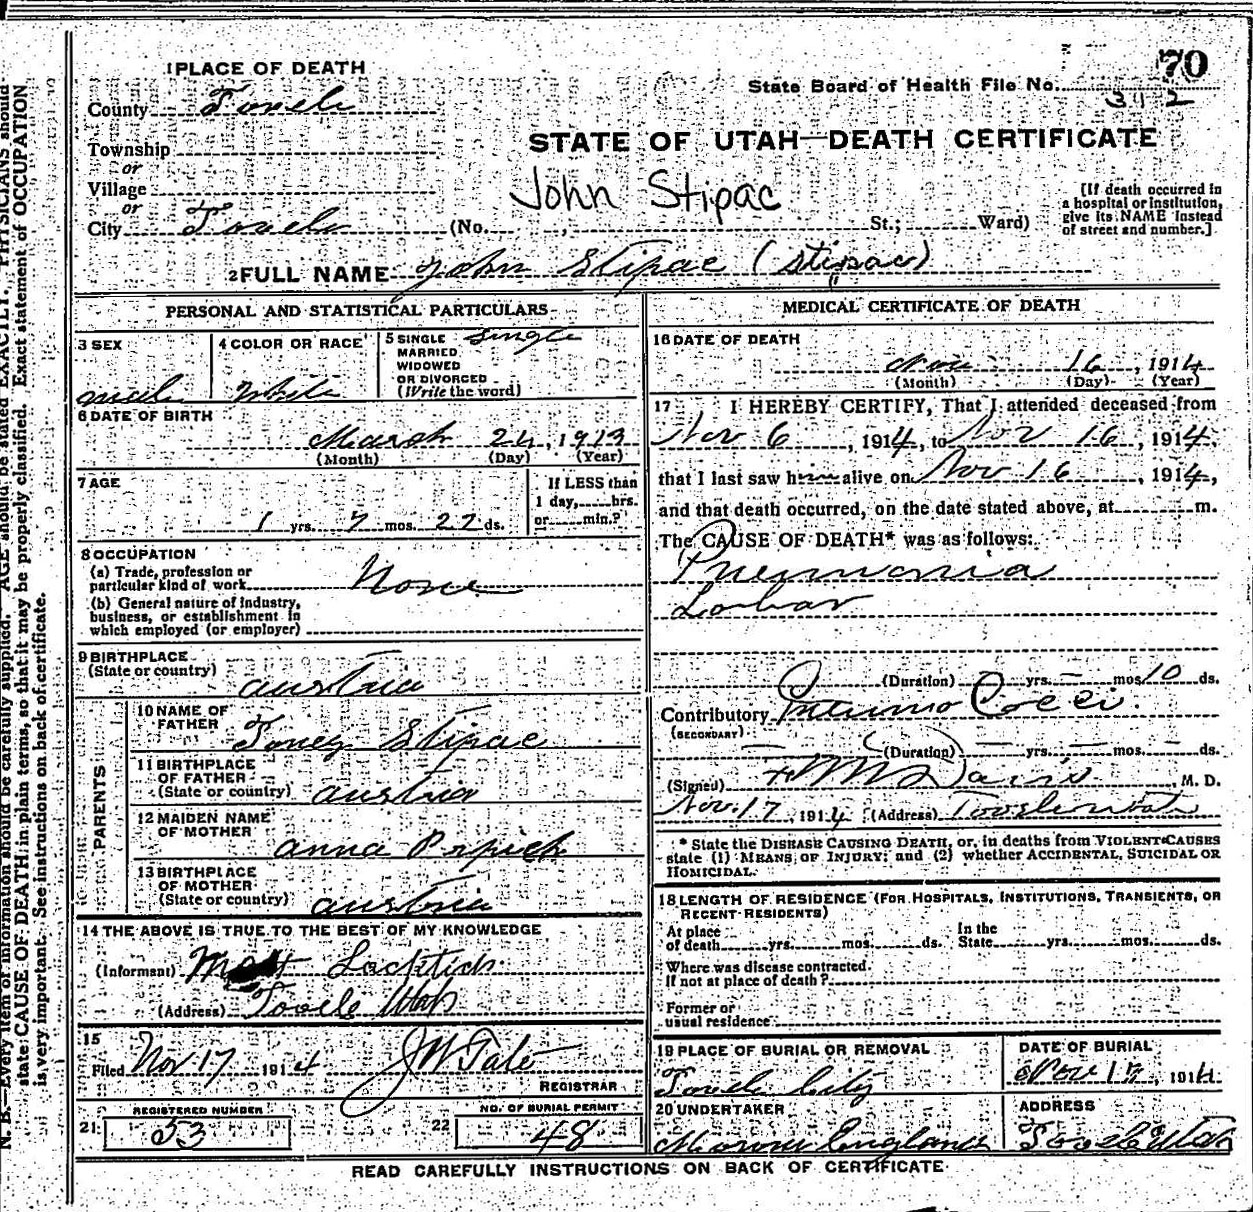 70
State Board of Health File No.
312
1 PLACE OF DEATH
County Tooele
STATE OF UTAH—DEATH CERTIFICATE
Township
or
Village
or
City Tooele (No. , St.; Ward)
John Stipac
[If death occurred in
a hospital or institution,
give its NAME instead
of street and number.]
2 FULL NAME John Stipac (Stipac)
PERSONAL AND STATISTICAL PARTICULARS
3 SEX
male
4 COLOR OR RACE
White
5 SINGLE
MARRIED
WIDOWED
OR DIVORCED
(Write the word)
Single
6 DATE OF BIRTH
March 24, 1913
(Month) (Day) (Year)
7 AGE
1 yrs. 7 mos. 27 ds.
If LESS than
1 day, hrs.
or min.?
8 OCCUPATION
(a) Trade, profession or
particular kind of work None
(b) General nature of industry,
business, or establishment in
which employed (or employer)
9 BIRTHPLACE
(State or country) Austria
PARENTS
10 NAME OF
FATHER Toney Stipac
11 BIRTHPLACE
OF FATHER
(State or country) Austria
12 MAIDEN NAME
OF MOTHER Anna
13 BIRTHPLACE
OF MOTHER
(State or country) Austria
14 THE ABOVE IS TRUE TO THE BEST OF MY KNOWLEDGE
(Informant) Matt
(Address) Tooele Utah
15
Filed Nov. 17 1914 J W Tate
REGISTRAR
REGISTERED NUMBER
21 53
NO. OF BURIAL PERMIT
22 48
MEDICAL CERTIFICATE OF DEATH
16 DATE OF DEATH
Nov. 16, 1914
(Month) (Day) (Year)
17 I HEREBY CERTIFY, That I attended deceased from
Nov 6, 1914, to Nov 16, 1914,
that I last saw him alive on Nov 16, 1914,
and that death occurred, on the date stated above, at m.
The CAUSE OF DEATH* was as follows:
Pneumonia
Lobar
(Duration) yrs. – mos. 10 ds.
Contributory Pneumo Cocci.
(SECONDARY)
(Duration) – yrs. – mos. – ds.
(Signed) F M Davis M. D.
Nov. 17, 1914 (Address) Tooele Utah
* State the DISEASE CAUSING DEATH, or, in deaths from VIOLENT CAUSES
state (1) MEANS OF INJURY; and (2) whether ACCIDENTAL, SUICIDAL OR
HOMICIDAL.
18 LENGTH OF RESIDENCE (FOR HOSPITALS, INSTITUTIONS, TRANSIENTS, OR
RECENT RESIDENTS)
At place
of death yrs. mos. ds.
In the
State yrs. mos. ds.
Where was disease contracted.
If not at place of death?
Former or
usual residence
19 PLACE OF BURIAL OR REMOVAL
Tooele City
DATE OF BURIAL
Nov 17, 1914
20 UNDERTAKER
England
ADDRESS
Tooele Utah
READ CAREFULLY INSTRUCTIONS ON BACK OF CERTIFICATE
N. B.—Every item of information should be carefully supplied. AGE should be stated EXACTLY. PHYSICIANS should
state CAUSE OF DEATH in plain terms, so that it may be properly classified. Exact statement of OCCUPATION
is very important. See instructions on back of certificate.